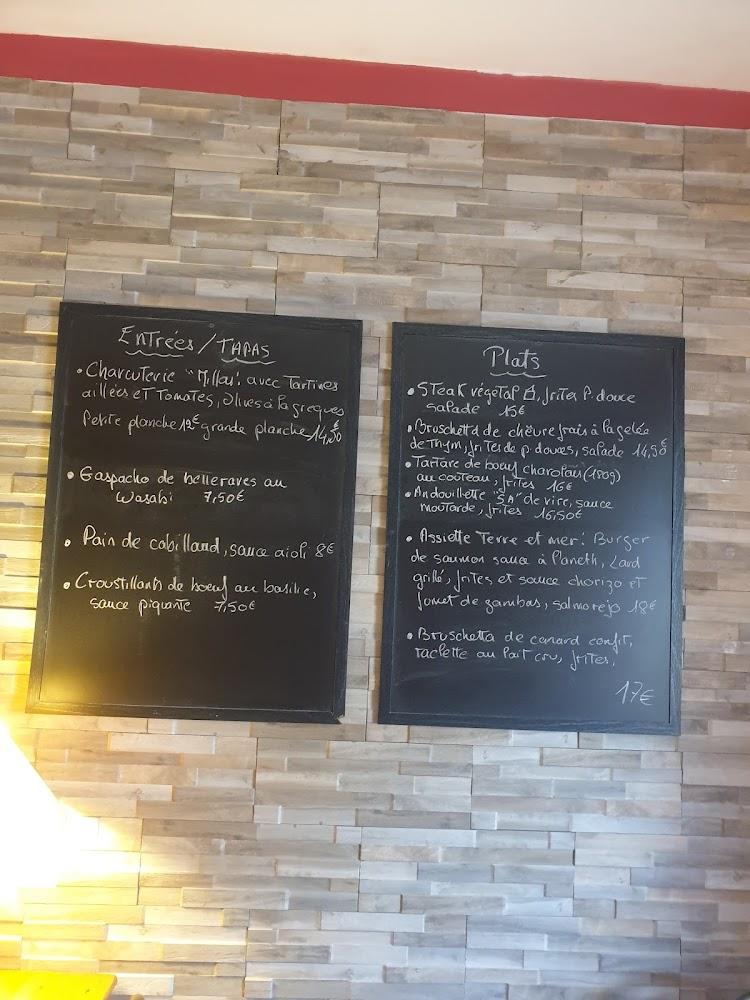 Entrées / TAPAS
• Charcuterie "Millas". avec Tartines
aillées et Tomates, olives à la grecques
Petite planche 12€ grande planche 14,50€
• Gaspacho de betteraves au
Wasabi 7,50€
• Pain de cabillaud, sauce aioli 8€
• Croustillants de boeuf au basilic,
sauce piquante 7,50€
Plats
• STeak végétal, frites p. douce
salade 15€
• Bruschetta de chèvre frais à la gelée
de Thym, frites de p. douces, salade 14,50€
• Tartare de boeuf charolais (180g)
au couteau, frites 16€
• Andouillette "5A" de vire, sauce
moutarde, frites 16,50€
• Assiette Terre et mer: Burger
de saumon sauce à l'aneth, Lard
grillé, frites et sauce chorizo et
fumet de gambas, salmorejo 18€
• Bruschetta de canard confit,
raclette au lait cru, frites,
17€